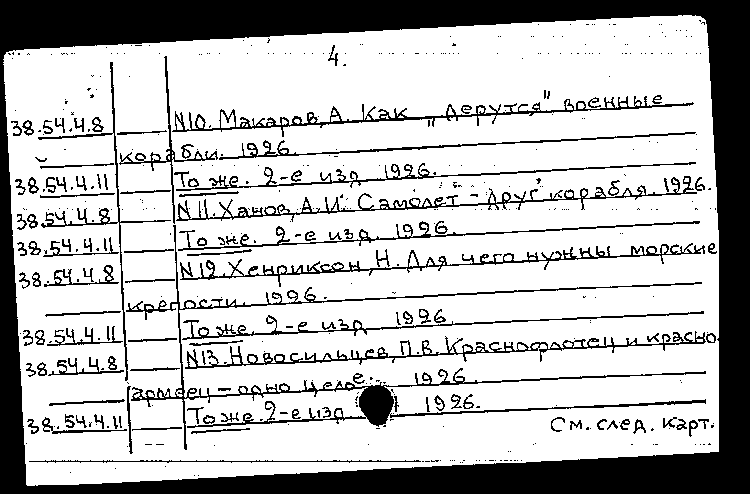 4.
38.54.4.8 N10. Макаров, А. Как „дерутся" военные
корабли. 1926.
38.54.4.11 То же. 2-е изд. 1926.
38.54.4.8 N11. Ханов, А.И. Самолет - друг корабля. 1926.
38.54.4.11 То же. 2-е изд. 1926.
38.54.4.8 N12. Хенриксон, Н. Для чего нужны морские
крепости. 1926.
38.54.4.11 То же. 2-е изд 1926
38.54.4.8 N13. Новосильцев, П.В. Краснофлотец и красно-
армеец - одно целое. 1926.
38.54.4.11 То же. 2-е изд 1926.
См. след. карт.